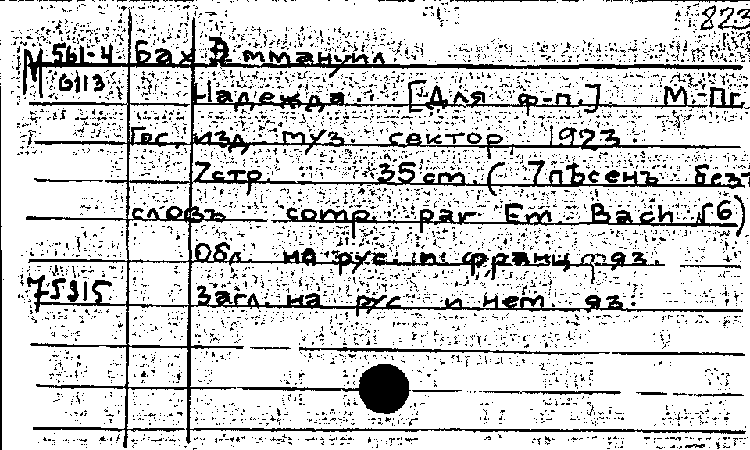 823
М 561-4 Бах Эммануил
6113
Надежда. [Для ф-п.] М.-Пг.
Гос. изд. муз. сектор, 1923.
7 стр. 35 cm. (7 пѣсенъ безъ
словъ comp. par Em. Bach №6)
Обл. на рус. и франц. яз.
75315 Загл. на рус. и нем. яз.